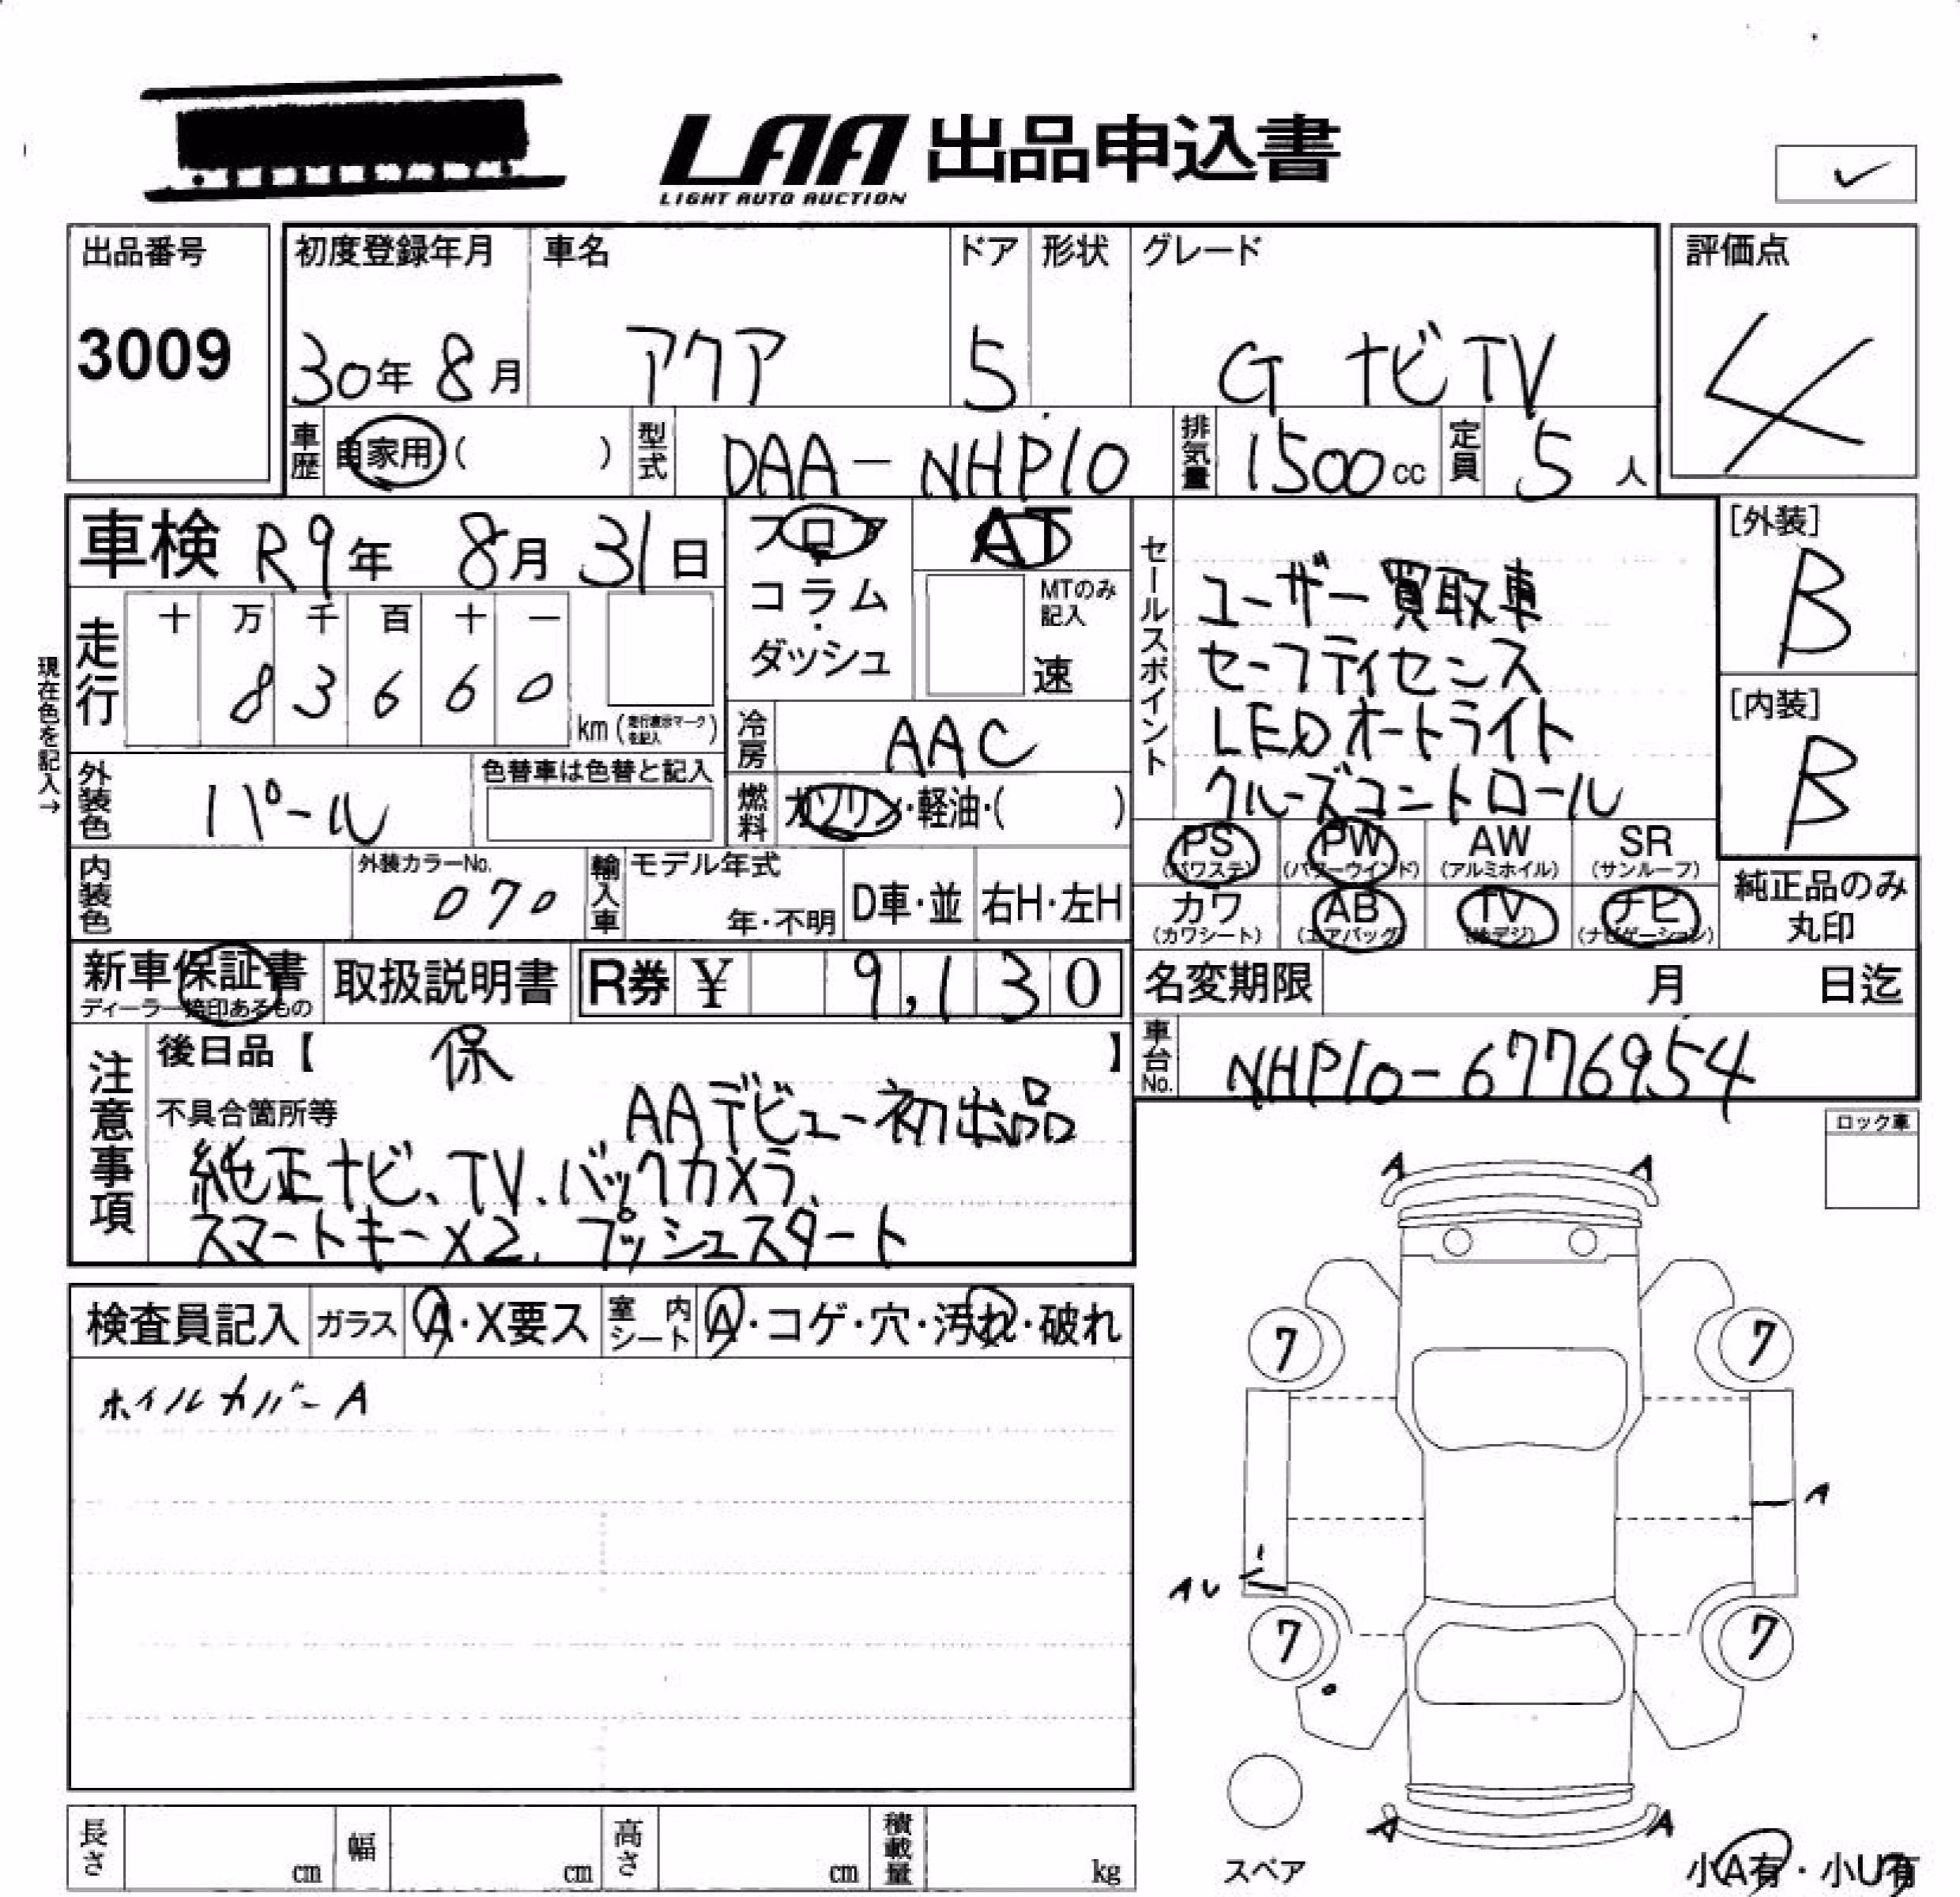 LAA 出品申込書
LIGHT AUTO AUCTION
✓
出品番号
3009
初度登録年月 車名 ドア 形状 グレード
30年 8月 アクア 5 G ナビ TV
評価点
4
車歴 自家用 ( ) 型式 DAA-NHP10 排気量 1500cc 定員 5人
車検 R9年 8月 31日
フロア・コラム・ダッシュ
AT
MTのみ記入
速
セールスポイント
ユーザー買取車
セーフティセンス
LEDオートライト
クルーズコントロール
[外装]
B
[内装]
B
現在色を記入→
走行 十 万 千 百 十 一
8 3 6 6 0 km (走行表示マークを記入)
冷房 AAC
外装色 パール 色替車は色替と記入
燃料 ガソリン・軽油・( )
PS AW PW SR
(パワステ) (パワーウインド) (アルミホイル) (サンルーフ)
カワ AB TV ナビ
(カワシート) (エアバッグ) (地デジ) (ナビゲーション)
純正品のみ丸印
内装色 外装カラーNo. 070 輸入車 モデル年式 年・不明 D車・並 右H・左H
新車保証書 取扱説明書 R券 ¥ 9,130
ディーラー捺印あるもの
名変期限 月 日迄
車台No. NHP10-6776954
注意事項
後日品【 保 】
不具合箇所等 AAデビュー初出品
純正ナビ、TV、バックカメラ、
スマートキーX2、プッシュスタート
ロック車
検査員記入 ガラス A・X要ス 室内シート A・コゲ・穴・汚れ・破れ
ホイルカバーA
A A
7 7
A
AU
7 7
A A
スペア
小A有・小U有
長さ cm 幅 cm 高さ cm 積載量 kg